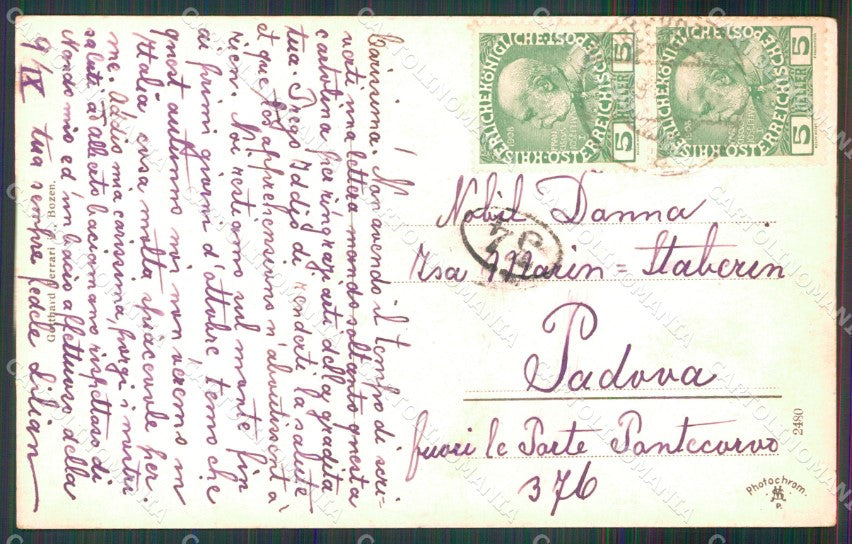 Carissima! Non avendo il tempo di scri-
verti una lettera mando soltanto questa
cartolina per ringraziarti della gradita
tua. Prego Iddio di renderti la salute
et que tes appréhensions n'aboutissent à
rien. Noi restiamo sul monte fin
ai primi giorni d'ottobre temo che
quest autunno noi non verremo in
Italia cosa molto spiacevole per
me. Addio mia carissima, porgi i nostri
saluti ad Alberto baciamano rispettoso di
Nando mio ed un bacio affettuoso della
9/IX tua sempre fedele Lilian
Gotthard Ferrari, Bozen.
KAISERLICHE KÖNIGLICHE ÖSTERREICHISCHE POST
5 HELLER 5
1908
KAISERLICHE KÖNIGLICHE ÖSTERREICHISCHE POST
5 HELLER 5
Nobil Donna
Isa Marin = Staberin
Padova
fuori le Porte Pontecorvo
376
2480
Photochrom.
P.
CARTOLINOMANIA